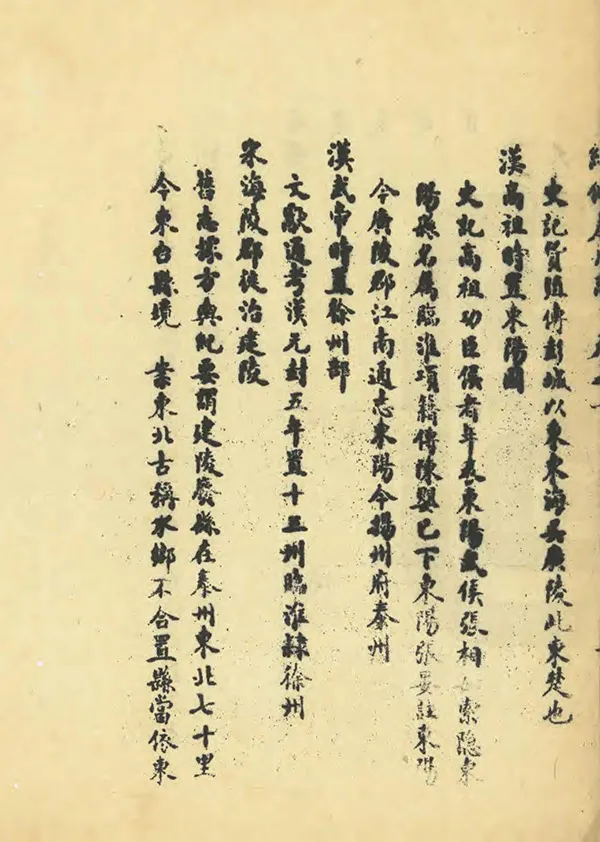 史記貨殖傳彭城以東東海吳廣陵此東楚也
漢高祖時置東陽國
史記高祖功臣侯者年表東陽武侯張相如索隱東
陽縣名屬臨淮項籍傳陳嬰已下東陽張晏註東陽
今廣陵郡江南通志東陽今揚州府泰州
漢武帝時置徐州部
文獻通考漢元封五年置十三州臨淮隸徐州
宋海陵郡徙治建陵
舊志據方輿紀要謂建陵廢縣在泰州東北七十里
今東台縣境 業東北古稱水鄉不合置縣當依東